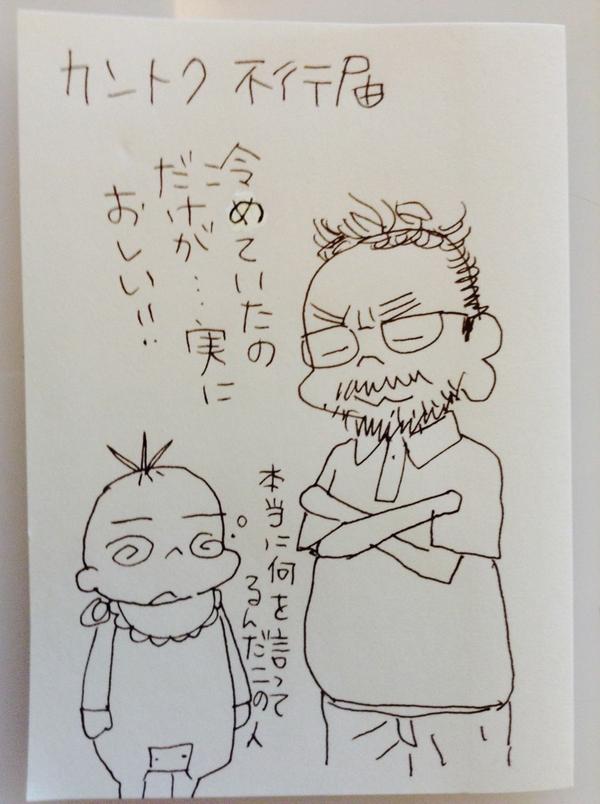 カントク 不行届
冷めていたの
だけが…実に
おしい!!
本当に何を言って
るんだこの人